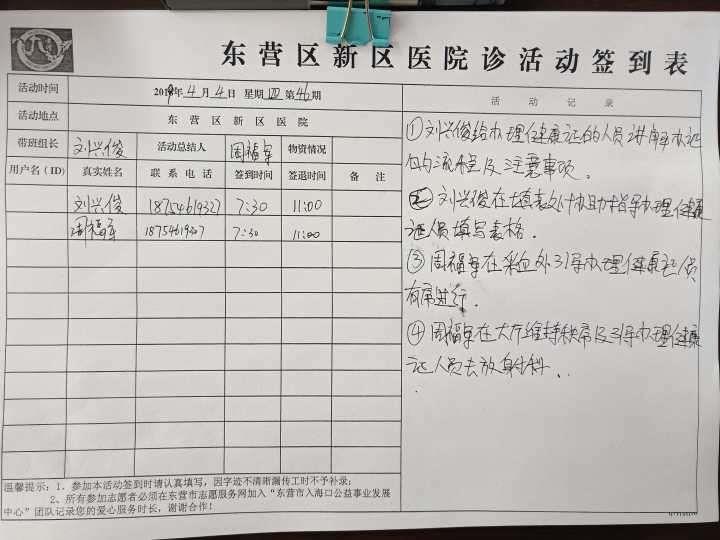 东营区新区医院诊活动签到表
活动时间 2019年4月4日 星期四第46期
活动地点 东营区新区医院
带班组长 刘兴俊 活动总结人 周福军 物资情况
用户名(ID) 真实姓名 联系电话 签到时间 签退时间 备注
刘兴俊 18754619327 7:30 11:00
周福军 18754619327 7:30 11:00
温馨提示:1、参加本活动签到时请认真填写,因字迹不清晰漏传工时不予补录;
2、所有参加志愿者必须在东营市志愿服务网加入“东营市入海口公益事业发展
中心”团队记录您的爱心服务时长,谢谢合作!
活动记录
①刘兴俊给办理健康证的人员讲解办证
的流程及注意事项。
②刘兴俊在填表处协助指导办理健康
证人员填写表格.
③周福军在采血处引导办理健康证人员
有序进行.
④周福军在大厅维持秩序及引导办理健康
证人员去放射科.